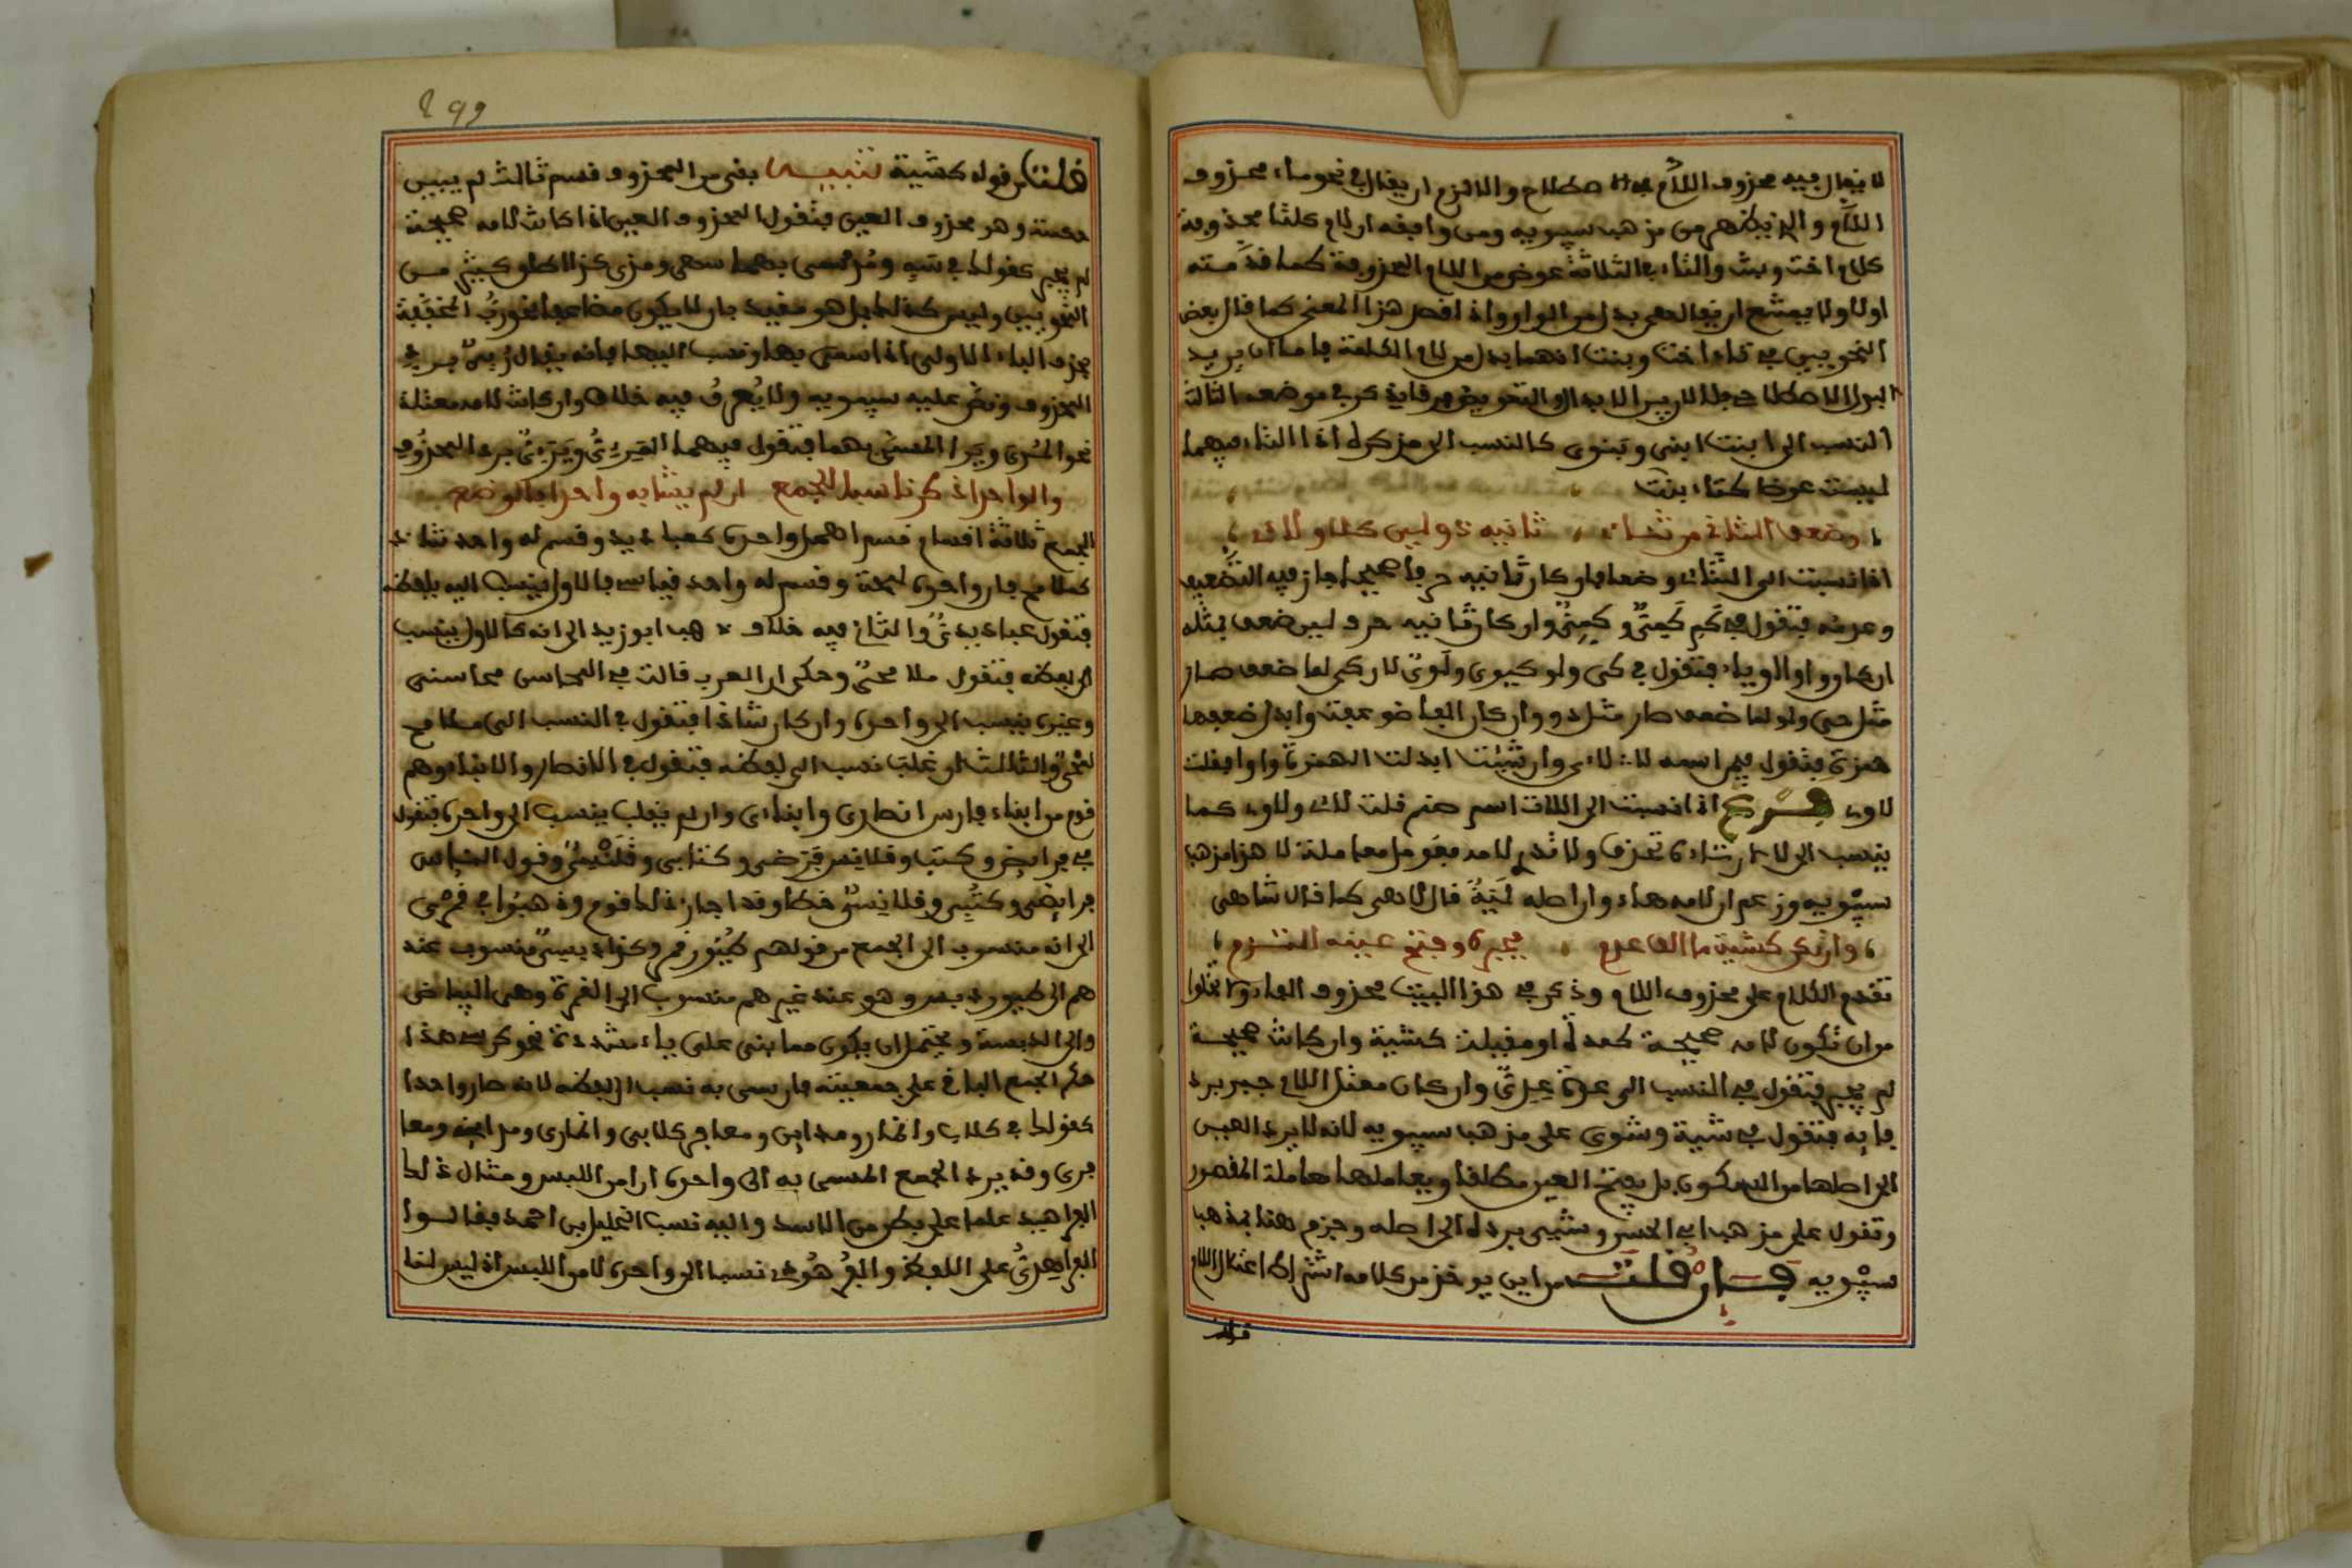 لا يقال فيه محزوف اللام في الاصطلاح والالزم ان يقال في نحو ماء محزوف
اللام والذي يظهر من مذهب سيبويه ومن وافقه ان لام كلتا محذوفة
كلام اخت وبنت والتاء في الثلاثة عوض من اللام المحزوفة كما قدمته
اولا ولا يمتنع ان يقال هي بدل من الواو واذا قصد هذا المعنى كما قال بعض
النحويين في تاء اخت وبنت انهما بدل من لام الكلمة فاما ان يريد
البدل الاصطلاحي فلا لان بين الابدال والتعويض فرقا يذكر في موضعه الثالث
النسب الى ابنت ابني وبنوي كالنسب الى مذكره اذا التاء فيهما
ليست عوضا كتاء بنت
وضعف الثاني من ثنائي ثانيه ذو لين كلا ولائي
اذا نسبت الى الثنائي وضعا فان كان ثانيه حرفا صحيحا جاز فيه التضعيف
وعدمه فتقول في كم كَمِيٌّ وكمّيٌّ وان كان ثانيه حرف لين ضعف بمثله
ان كان واوا او ياء فتقول في كي ولو كيوي ولَوِّيّ لان كي لما ضعف صار
مثل حي ولو لما ضعف صار مثل دو وان كان الفا ضوعفت وابدل ضعفها
همزة فتقول فيمن اسمه لا لائي وان شئت ابدلت الهمزة واوا فقلت
لاوي فرع اذا نسبت الى اللات اسم صنم قلت لائي ولاوي كما
ينسب الى لا لان تاءه تحذف ولا تدري لامه فعومل معاملة لا هذا مذهب
سيبويه وزعم ان لامه هاء وان اصله لَيَهٌ قال لاهي كما قال شاهي
وان يكن كشية ما الفا عدم فجبره وفتح عينه التزم
تقدم الكلام على محزوف اللام وذكر في هذا البيت محزوف الفا ولا يخلوا
من ان تكون لامه صحيحة كعدة او معتلة كشية وان كانت صحيحة
لم يجبر فتقول في النسب الى عدة عِدِيٌّ وان كان معتل اللام جبر برد
فائه فتقول في شية وشوي على مذهب سيبويه لانه لا يرد العين
الى اصلها من السكون بل يفتح العين مطلقا ويعاملها معاملة المقصور
وتقول على مذهب ابي الحسن وشيي برده الى اصله وجزم هنا بمذهب
سيبويه فان قلت من اين يوخذ من كلامه اشتراط اعتلال اللام
قلت
299
قلت من قوله كشية تنبيه بقي من المحزوف قسم ثالث لم يبين
حكمه وهو محزوف العين فنقول المحزوف العين اذا كانت لامه صحيحة
لم يجبر كقولك في سه ومذ مسمى بهما سهي ومذي كذا اطلق كثير من
النحويين وليس كذلك بل هو مقيد بان لا يكون مضاعفا نحو رب المخففة
بحذف الباء الاولى اذا سمي بها ونسب اليها فانه يقال ربّيّ برد
المحزوف ونص عليه سيبويه ولا يُعرفُ فيه خلاف وان كانت لامه معتلة
نحو المُري ويَرى المسمى بهما فتقول فيهما المرئي ويرئي برد المحزوف
والواحد اذكر ناسبا للجمع ان لم يشابه واحدا بالوضع
الجمع ثلاثة اقسام قسم اهمل واحده كعباديد وقسم له واحد شاذ
كملامح فان واحده لمحة وقسم له واحد قياسي فالاول ينسب اليه بلفظه
فتقول عباديديّ والثاني فيه خلاف ذهب ابو زيد الى انه كالاول ينسب
الى لفظه فتقول ملامحيّ وحكى ان العرب قالت في المحاسن محاسني
وغيره ينسب الى واحده وان كان شاذا فتقول في النسب الى ملامح
لمحيّ والثالث ان غلب نسب الى لفظه فتقول في الانصار والابناء وهم
قوم من ابناء فارس انصاري وابناءي وان لم يغلب ينسب الى واحده فتقول
في فرايض وكتب وقلانس فرضي وكتابي وقلنسيّ وقول الناس
فرايضي وكتبي وقلانسيّ خطا وقد اجاز ذلك قوم وذهبوا في قمري
الى انه منسوب الى الجمع من قولهم طيور قمر وكذا دبسيّ منسوب عند
هم الى طيور دبس وهو عند غيرهم منسوب الى القمرة وهي البياض
والى الدبسة ويحتمل ان يكون مما بني على ياء مشددة نحو كرسي هذا
حكم الجمع الباقي على جمعيته فان سمي به نسب الى لفظه لانه صار واحدا
كقولك في كلاب وانمار ومداين ومعافر كلابي وانماري ومدايني ومعا
فري وقد يرد الجمع المسمى به الى واحده ان امن اللبس ومثال ذلك
الفراهيد علما على بطن من الاسد واليه نسب الخليل بن احمد فقالوا
الفراهيديُّ على اللفظ والفُرهُودي نسبا الى واحده لامن اللبس اذ ليس لنا